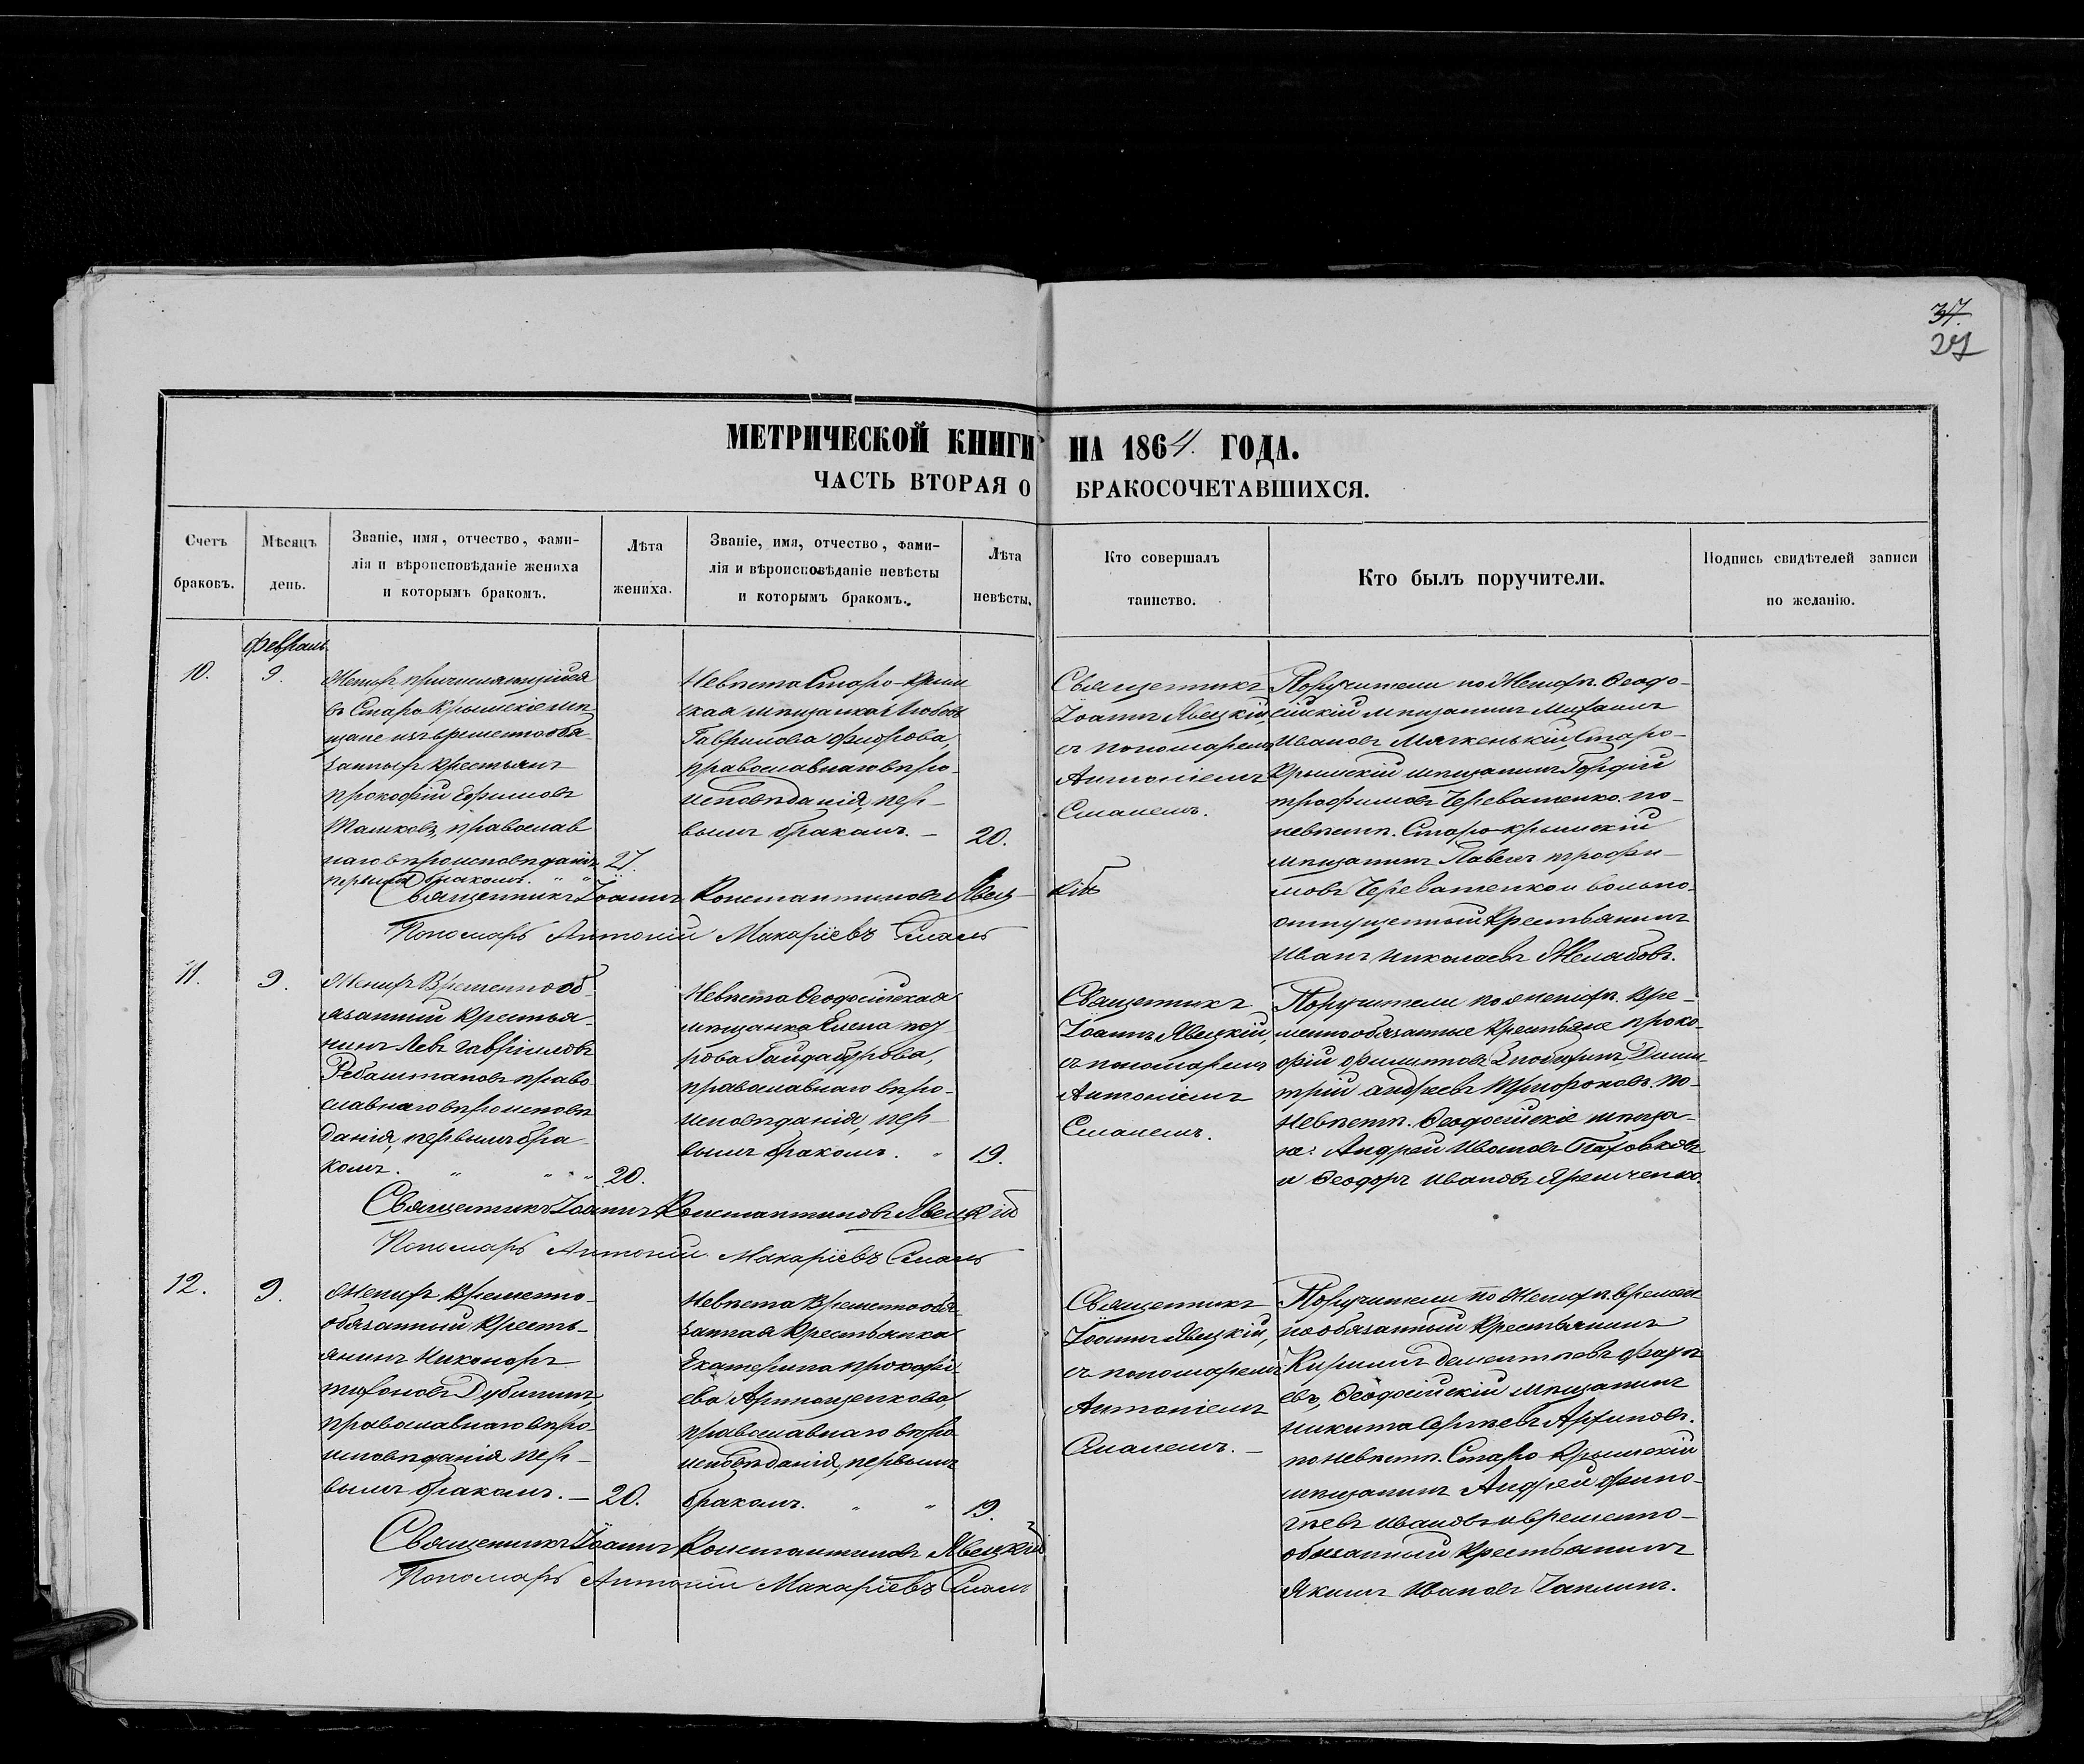 37.
27
МЕТРИЧЕСКОЙ КНИГИ НА 1864. ГОДА.
ЧАСТЬ ВТОРАЯ О БРАКОСОЧЕТАВШИХСЯ.
Счетъ
браковъ.
Мѣсяцъ
день.
Званіе, имя, отчество, фами-
лія и вѣроисповѣданіе жениха
и которымъ бракомъ.
Лѣта
жениха.
Званіе, имя, отчество, фами-
лія и вѣроисповѣданіе невѣсты
и которымъ бракомъ.
Лѣта
невѣсты.
Кто совершалъ
таинство.
Кто былъ поручители.
Подпись свидѣтелей записи
по желанію.
Февраль
10.
9.
Женихъ причисляющійся
въ Старо Крымскіе мѣ-
щане изъ временнообя-
занныхъ крестьянъ
Прокофій Ефимовъ
православ
наго вѣроисповѣданія,
первымъ бракомъ. " "
27.
Невѣста Старо-Крым
ская мѣщанка Любовь
Гаврилова
православнаго вѣро-
исповѣданія, пер-
вымъ бракомъ. –
20.
Священникъ
Іоаннъ Явецкій,
съ пономаремъ
Антоніемъ
Смалемъ.
Поручители по Женихѣ. Ѳеодо-
сійскій мѣщанинъ Михаилъ
Ивановъ Мягкенькій, Старо-
Крымскій мѣщанинъ Гордій
Трофимовъ Череватенко. по-
невѣстѣ. Старо-крымскій
мѣщанинъ Павелъ Трофи-
мовъ Череватенко и вольно-
отпущенный Крестьянинъ
Иванъ Николаевъ Желябовъ.
Священникъ Іоаннъ Константиновъ Явецкій
Пономарь Антоній Макаріевъ Смаль
11.
9.
Женихъ Временнооб-
язанный Крестья-
нинъ Левъ Гавріиловъ
право
славнаго вѣроисповѣ
данія, первымъ бра-
комъ. " " " "
20.
Невѣста Ѳеодосійская
мѣщанка Елена Пет
рова Гайдабурова,
православнаго вѣро-
исповѣданія, пер-
вымъ бракомъ. "
19.
Священникъ
Іоаннъ Явецкій,
съ пономаремъ
Антоніемъ
Смалемъ.
Поручители по женихѣ. Вре-
меннообязанные Крестьяне Проко-
фій Филиповъ Дими
трій Андреевъ по-
Невѣстѣ. Ѳеодосійскіе мѣща-
не: Андрей Ивановъ
и Ѳеодоръ Ивановъ Яремченко.
Священникъ Іоаннъ Константиновъ Явецкій
Пономарь Антоній Макаріевъ Смаль
12.
9.
Женихъ Временно-
обязанный Кресть-
янинъ Никоноръ
Тихоновъ Дубининъ,
православнаго вѣро-
исповѣданія пер-
вымъ бракомъ. –
20.
Невѣста Временнообя-
занная Крестьянка
Екатерина Прокофі-
ева
православнаго вѣро
исповѣданія, первымъ
бракомъ. " "
19.
Священникъ
Іоаннъ Явецкій,
съ пономаремъ
Антоніемъ
Смалемъ. –
Поручители по Женихѣ. времен-
нообязанный Крестьянинъ
Кирилъ Дементьевъ
евъ, Ѳеодосійскій мѣщанинъ
Никита Сергѣевъ
по невѣстѣ. Старо-Крымскій
мѣщанинъ Андрей Фино-
гѣевъ Ивановъ и временно-
обязанный Крестьянинъ
Якимъ Ивановъ Чаплинъ.
Священникъ Іоаннъ Константиновъ Явецкій
Пономарь Антоній Макаріевъ Смаль